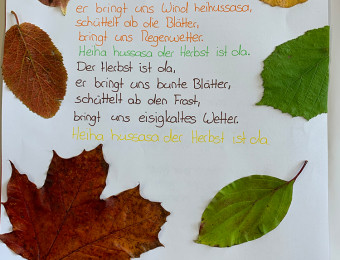 er bringt uns Wind heihussasa,
schüttelt ab die Blätter,
bringt uns Regenwetter.
Heiha hussasa der Herbst ist da.
Der Herbst ist da,
er bringt uns bunte Blätter,
schüttelt ab den Frost,
bringt uns eisigkaltes Wetter.
Heiha hussasa der Herbst ist da